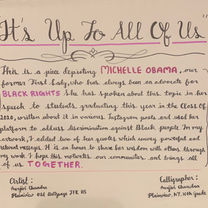 It's Up To All Of Us
This is a piece depicting MICHELLE OBAMA, our
former First Lady, who has always been an advocate for
BLACK RIGHTS. She has spoken about this topic in her
speech to students graduating this year in the Class of
2020, written about it in various Instagram posts and used her
platform to address discrimination against Black people. In my
artwork, I added two of her quotes which convey powerful and
messages. It is an honor to share her wisdom with others through
my work. I hope this motivates our communities, and brings all
of us TOGETHER.
Artist:
Anjali Chanda
Plainview Old Bethpage JFK HS
Calligrapher:
Anjali Chanda
Plainview, NY, 10th Grade